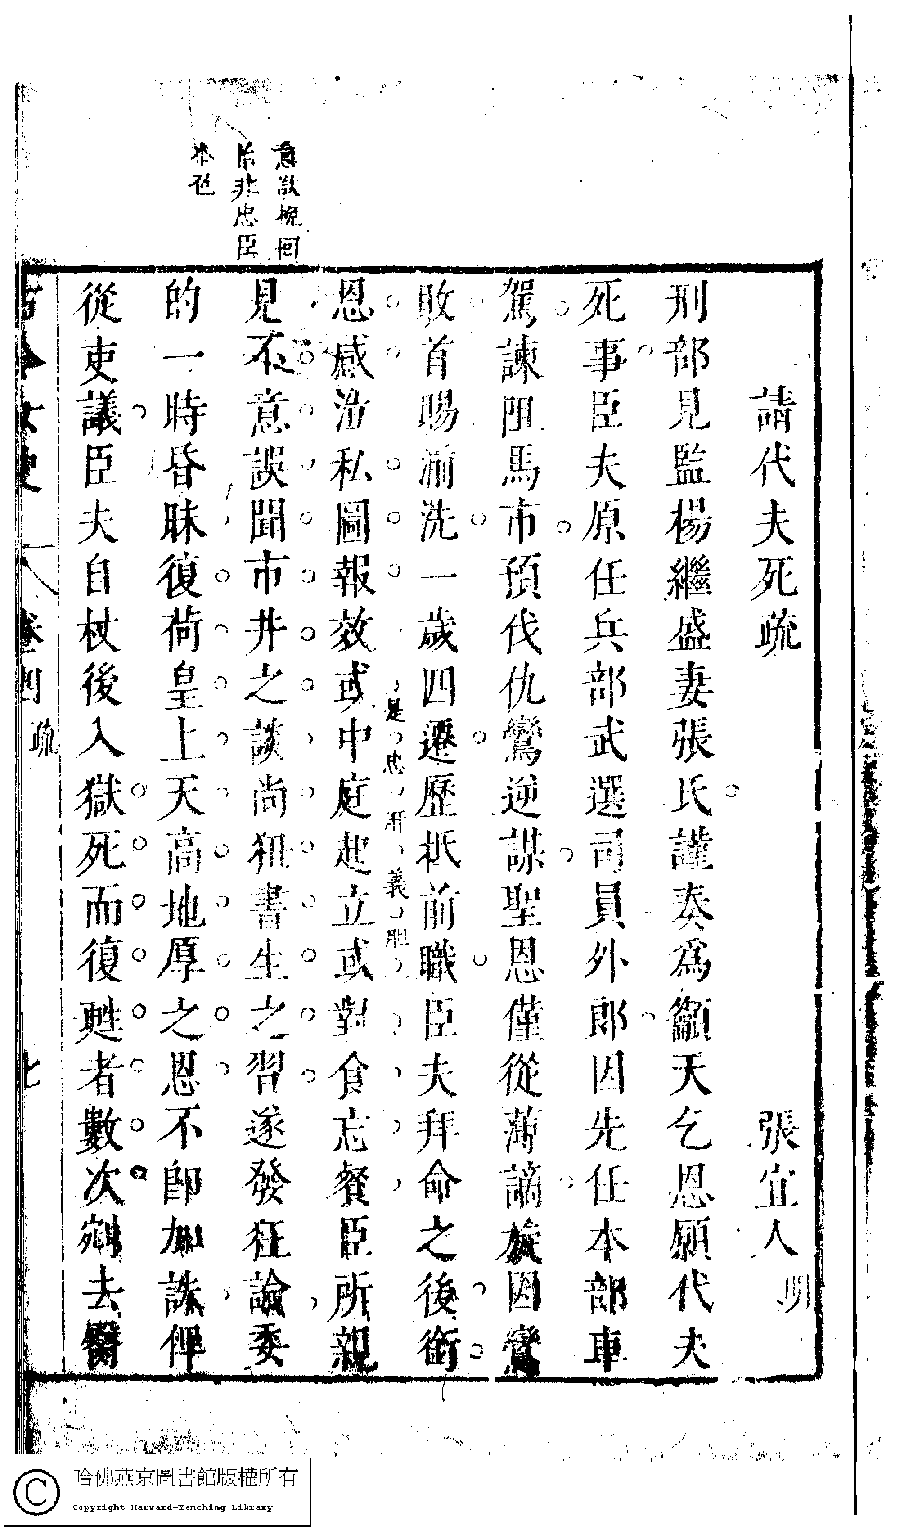 意欲挽回
原非忠臣
本色
請代夫死疏
張宜人 明
刑部見監楊繼盛妻張氏謹奏爲籲天乞恩願代夫
死事臣夫原任兵部武選司員外郎因先任本部車
駕諫阻馬市預伐仇鸞逆謀聖恩僅從薄謫旋因鸞
敗首賜湔洗一歲四遷歷抵前職臣夫拜命之後銜
是忠肝義膽
恩感泣私圖報效或中庭起立或對食忘餐臣所親
見不意誤聞市井之談尚狃書生之習遂發狂論委
的一時昏昧復荷皇上天高地厚之恩不即加誅俾
從吏議臣夫自杖後入獄死而復甦者數次剜去臀
古今女史 卷四 疏 七
哈佛燕京圖書館版權所有
Copyright Harvard-Yenching Library